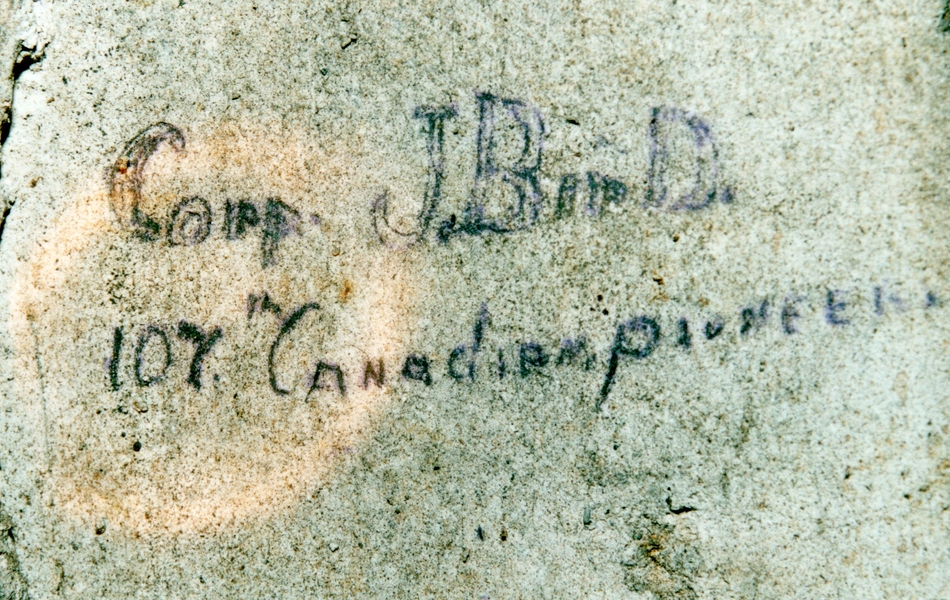 Corp. J. Bon D.
107th Canadian Pioneers